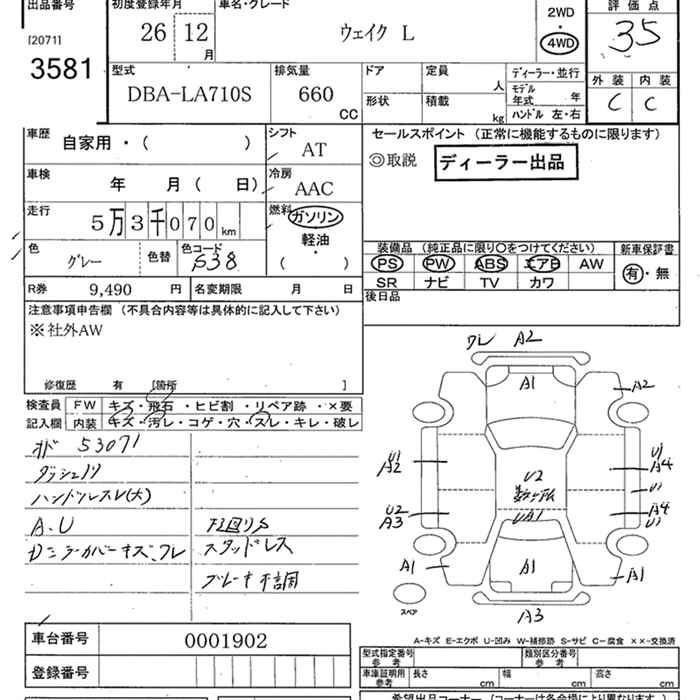 出品番号 初度登録年月 車名・グレード 2WD 4WD 評価点
[2071] 26 12 月 ウェイク L 35
3581
型式 排気量 ドア 定員 人 ディーラー・並行 外装 内装
DBA-LA710S 660 CC 形状 積載 kg モデル年式 年 C C
ハンドル 左・右
車歴 自家用・( ) シフト AT
セールスポイント (正常に機能するものに限ります)
◎取説 ディーラー出品
車検 年 月( 日) 冷房 AAC
走行 5万3千070km 燃料 ガソリン
軽油
・
( )
色 グレー 色替 色コード S38
装備品 (純正品に限り○をつけてください) 新車保証書
PS PW ABS エアB AW 有・無
SR ナビ TV カワ
R券 9,490 円 名変期限 月 日 後日品
注意事項申告欄 (不具合内容等は具体的に記入して下さい)
※社外AW
修復歴 有 [箇所 ]
検査員 FW キズ・飛石・ヒビ割・リペア跡・×要
記入欄 内装 キズ・汚レ・コゲ・穴・スレ・キレ・破レ
53071
ハンドルスレ(大)
A.U
スタッドレス
ブレーキ不調
ワレ A2
A1
A2
U1
A2
U1
A4
U2
U2
A3
UA1
A4
A1
A1
A1
スペア
A3
A-キズ E-エクボ U-凹み W-補修跡 S-サビ C-腐食 ××-交換済
車台番号 0001902
型式指定番号 参考 類別区分番号 参考
登録番号
車庫証明用 参考 長さ cm 幅 cm 高さ cm